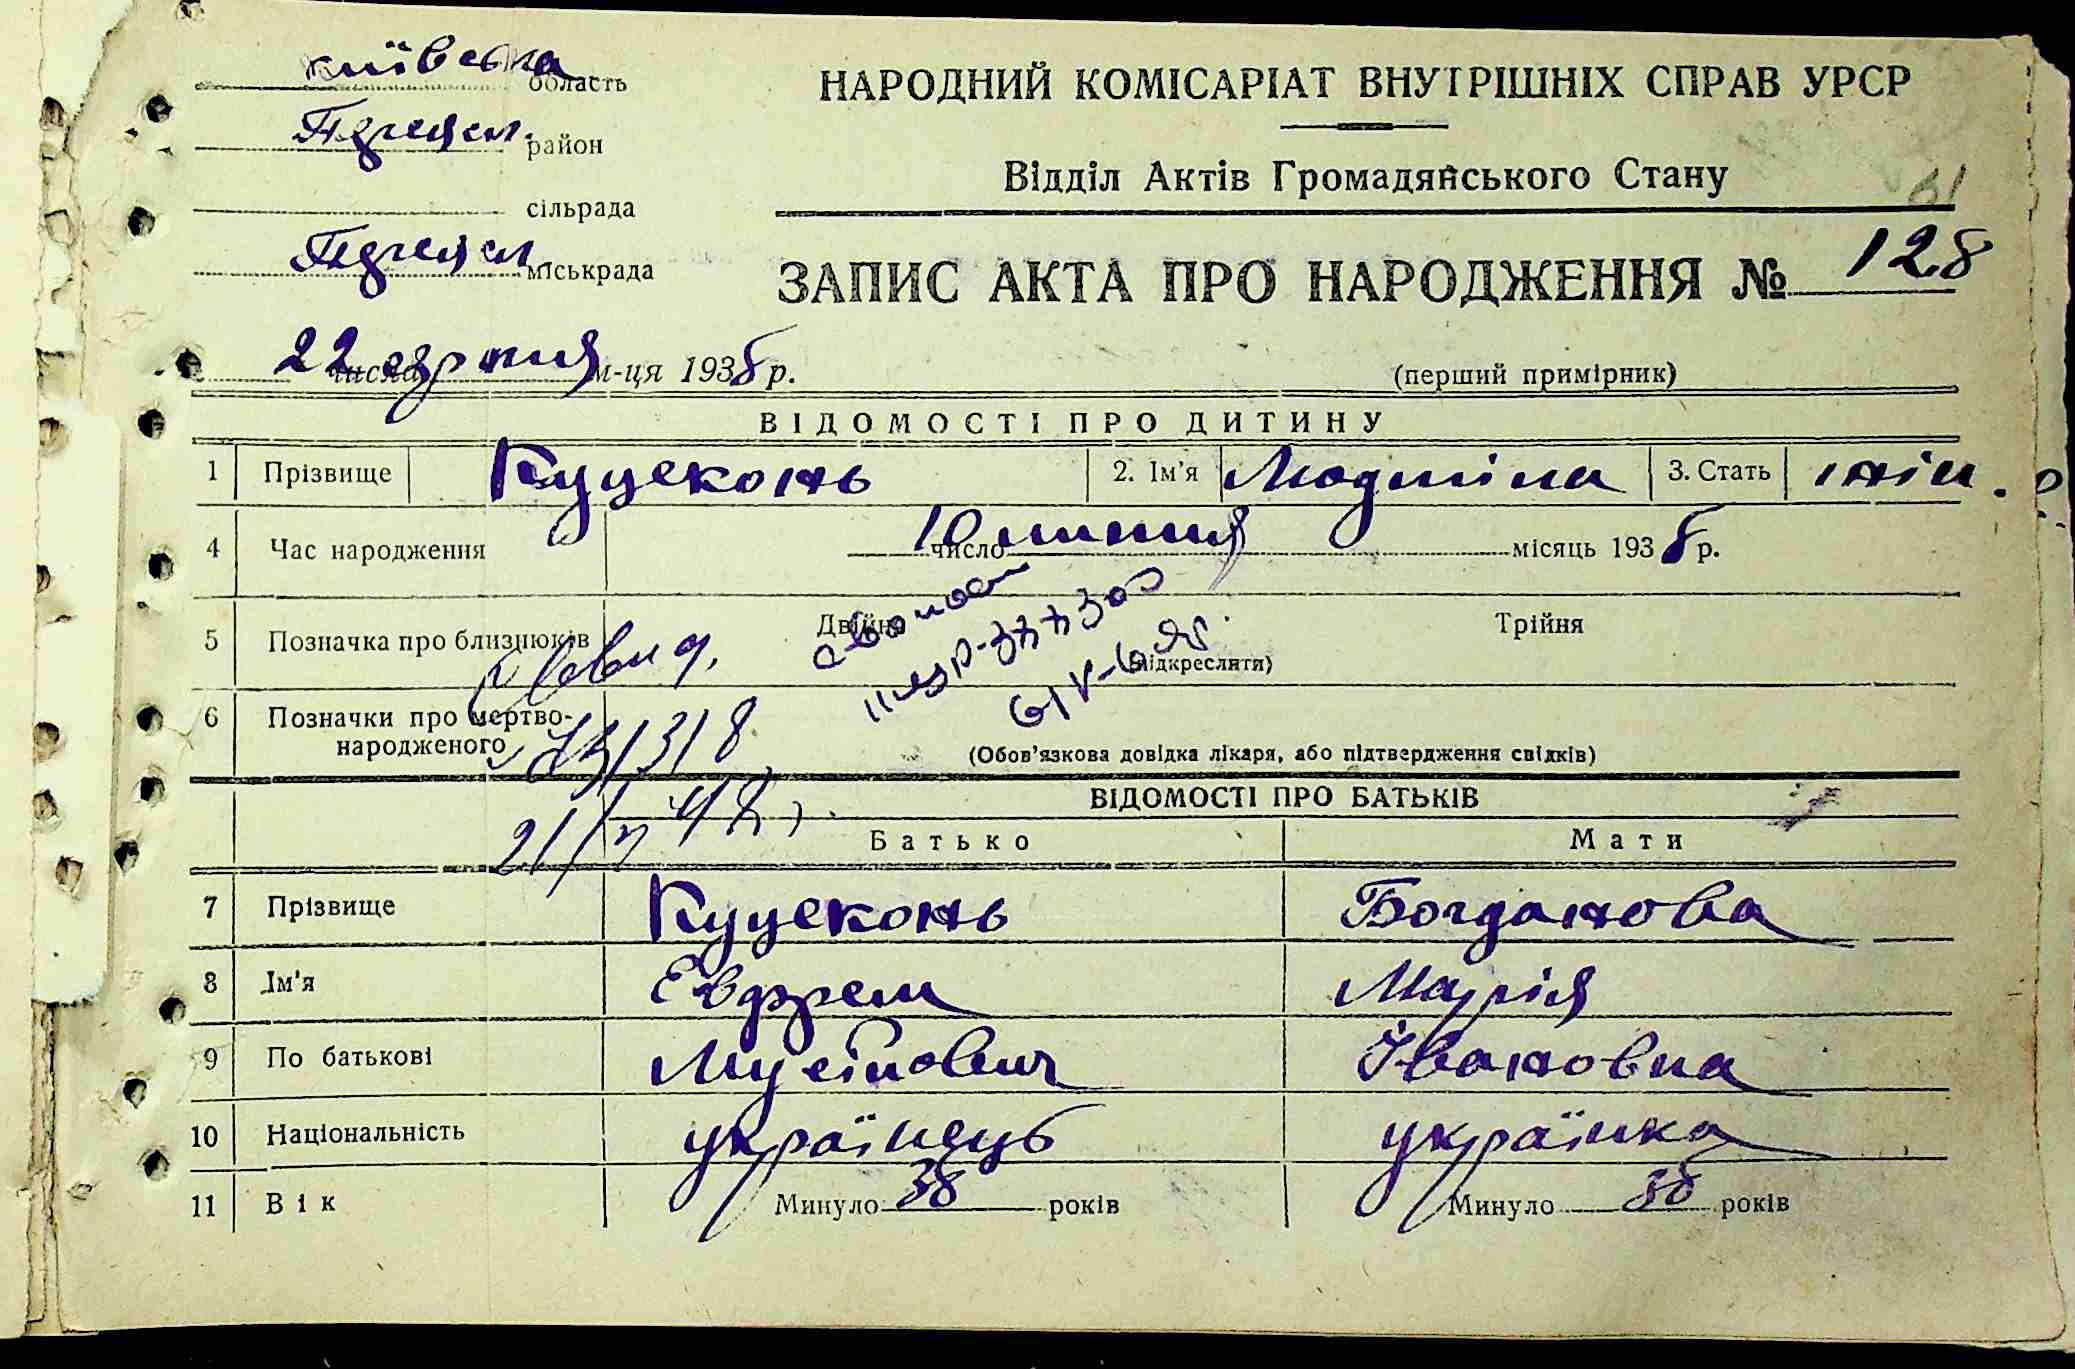 київська область
район
сільрада
міськрада
НАРОДНИЙ КОМІСАРІАТ ВНУТРІШНІХ СПРАВ УРСР
Відділ Актів Громадянського Стану
ЗАПИС АКТА ПРО НАРОДЖЕННЯ № 128
22 числа серпня м-ця 1938 р.
(перший примірник)
ВІДОМОСТІ ПРО ДИТИНУ
1 Прізвище Куцеконь 2. Ім'я Людміла 3. Стать жін.
4 Час народження 10 число липня місяць 1938 р.
5 Позначка про близнюків Двійня Трійня
(підкреслити)
6 Позначки про мертвонародженого
(Обов'язкова довідка лікаря, або підтвердження свідків)
ВІДОМОСТІ ПРО БАТЬКІВ
Батько Мати
7 Прізвище Куцеконь Богданова
8 Ім'я Евфрем Марія
9 По батькові Мусійович Івановна
10 Національність українець українка
11 Вік Минуло 38 років Минуло 38 років